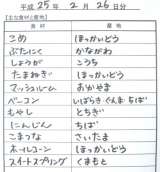 平成 25 年 2 月 26 日分
【主な食材と産地】
食材 産地
こめ ほっかいどう
ぶたにく かながわ
しょうが こうち
たまねぎ ほっかいどう
マッシュルーム おかやま
ベーコン いばらき ぐんま ちば
もやし とちぎ
にんじん ちば
こまつな さいたま
ホールコーン ほっかいどう
スイートスプリング くまもと